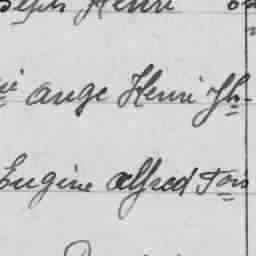 Henri
ange Henri Jh
Eugène alfred Fois